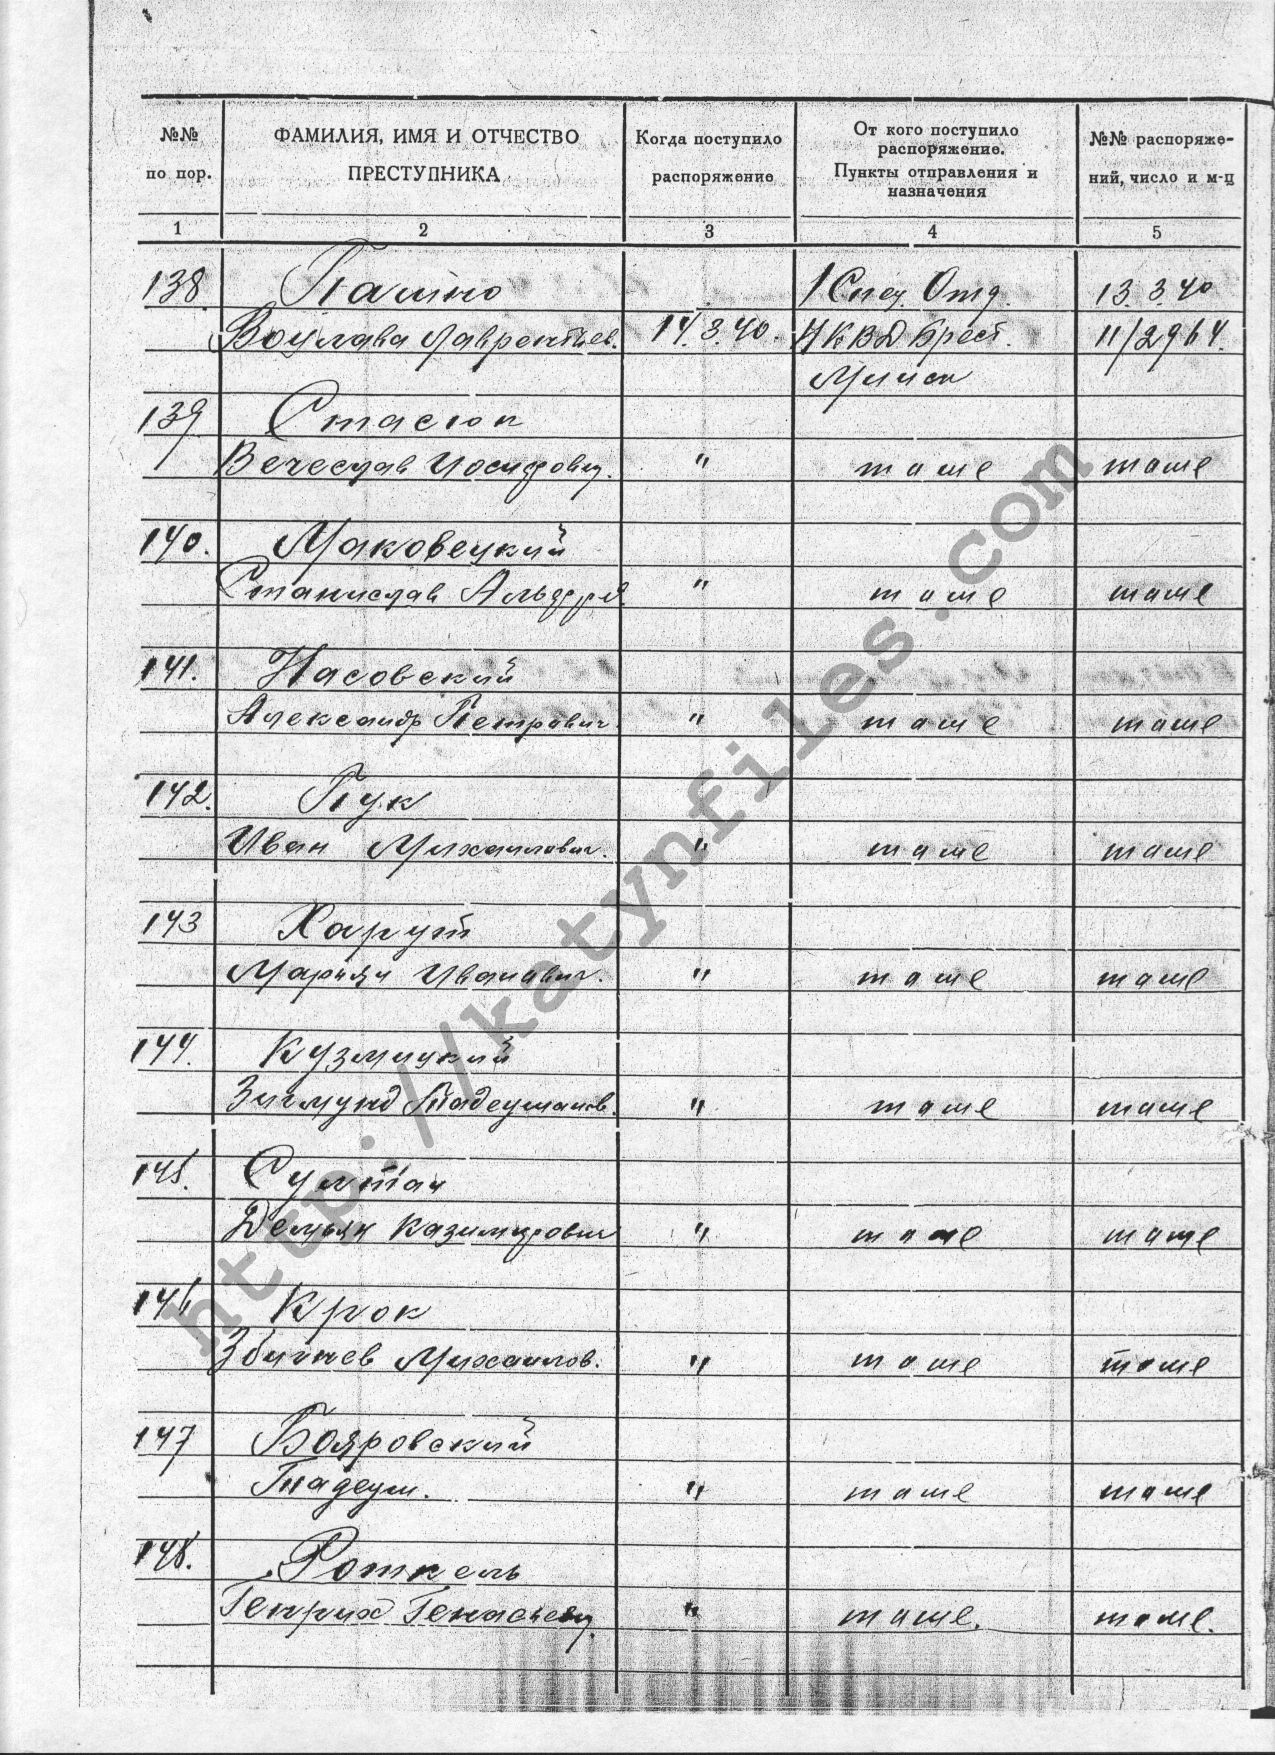 №№ по пор.
ФАМИЛИЯ, ИМЯ И ОТЧЕСТВО ПРЕСТУПНИКА
Когда поступило распоряжение
От кого поступило распоряжение. Пункты отправления и назначения
№№ распоряжений, число и м-ц
1 2 3 4 5
138 1 Спец Отд. 13.3.40
Лаврентьев. 14.3.40. НКВД Брест. 11/2964.
Минск
139 Стасюк
Вечеслав Иосифович. " таме таме
140. Маковецкий
Станислав " таме таме
141. Насовский
Александр Петрович. " таме таме
142. Пук
Иван Михаилович. " таме таме
143 Харут
Марьян Иванович. " таме таме
144. Кузмицкий
Зигмунд Тадеушов. " таме таме
145. Султан
Демьян Казимирович " таме таме
146 Крок
Збигнев Михаилов. " таме таме
147 Бояровский
Тадеуш. " таме таме
148. Роткель
Генрих " таме. таме.
http://katynfiles.com